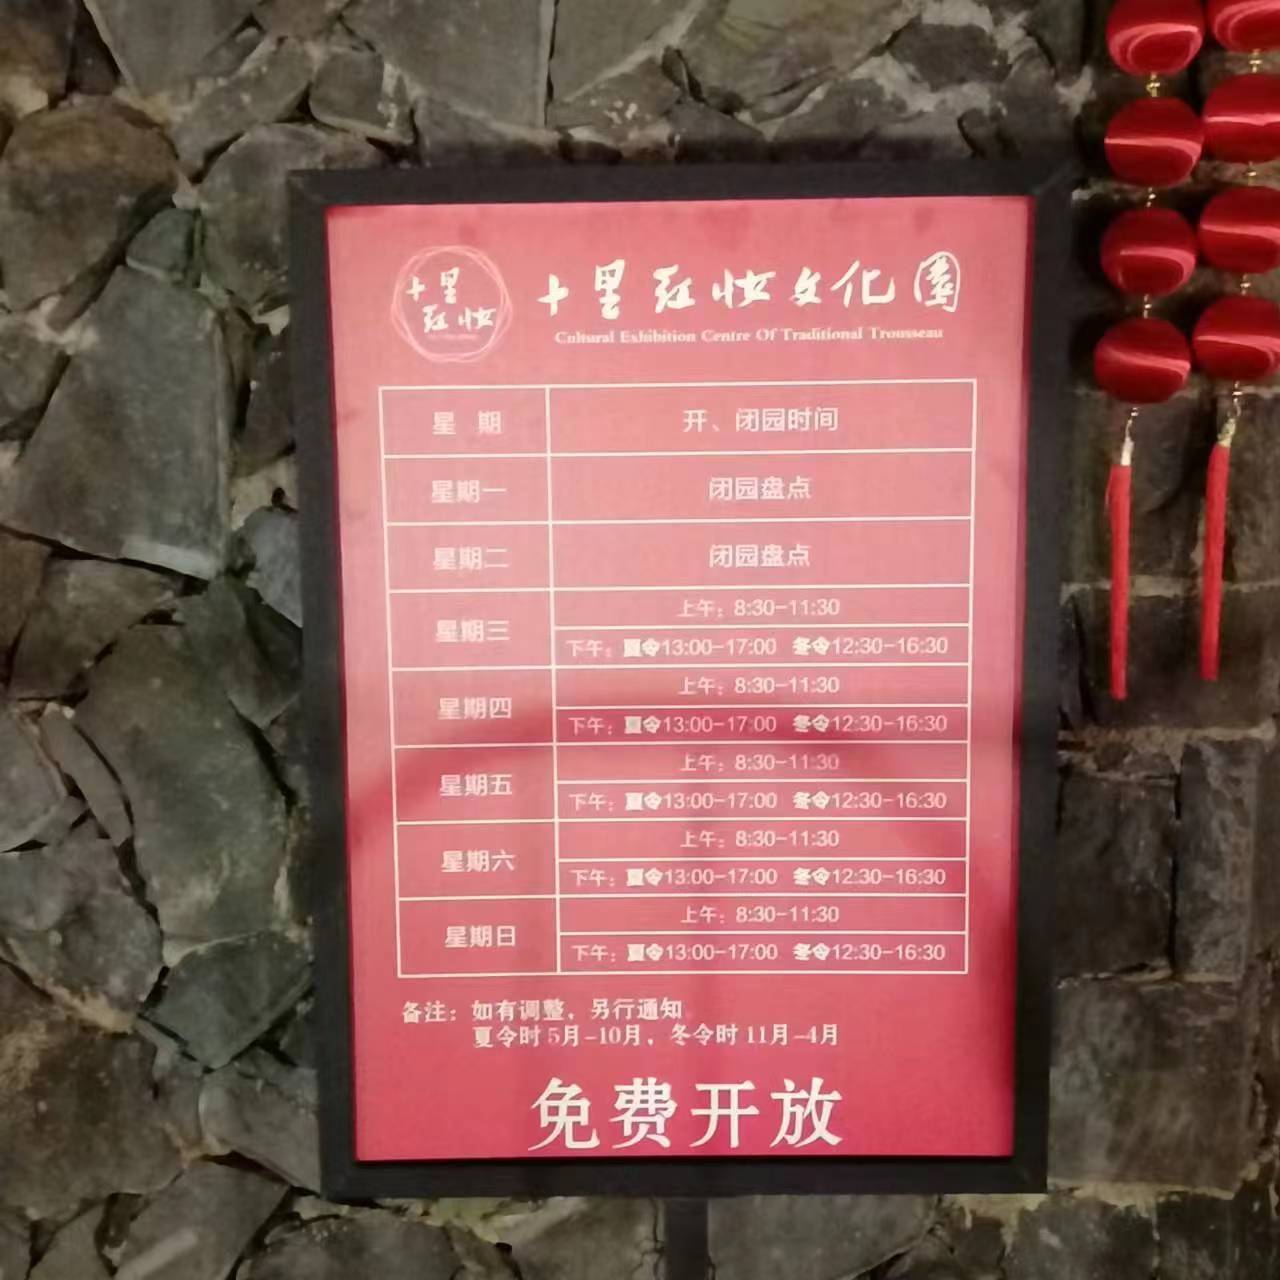 十里
红妆
十里红妆文化園
Cultural Exhibition Centre Of Traditional Trousseau
星 期 开、闭园时间
星期一 闭园盘点
星期二 闭园盘点
星期三 上午：8:30-11:30
下午：夏令13:00-17:00 冬令12:30-16:30
星期四 上午：8:30-11:30
下午：夏令13:00-17:00 冬令12:30-16:30
星期五 上午：8:30-11:30
下午：夏令13:00-17:00 冬令12:30-16:30
星期六 上午：8:30-11:30
下午：夏令13:00-17:00 冬令12:30-16:30
星期日 上午：8:30-11:30
下午：夏令13:00-17:00 冬令12:30-16:30
备注：如有调整，另行通知
夏令时 5月-10月，冬令时 11月-4月
免费开放